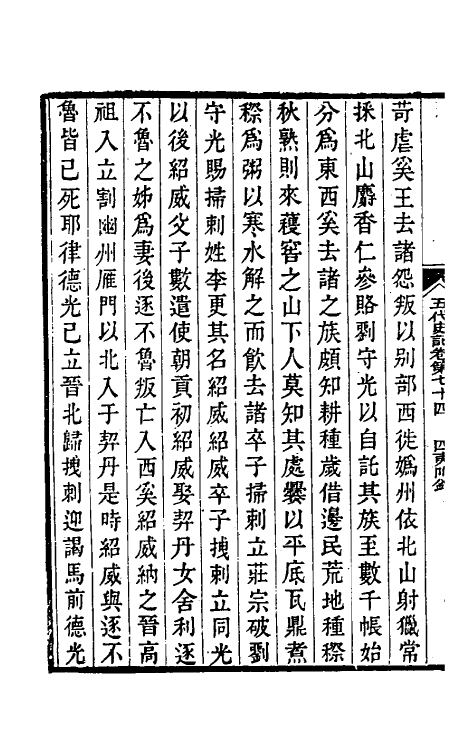 五代史記卷第七十四　四夷附錄
苛虐奚王去諸怨叛以别部西徙媯州依北山射獵常
採北山麝香仁參賂劉守光以自託其族至數千帳始
分爲東西奚去諸之族頗知耕種歲借邊民荒地種穄
秋熟則來穫窖之山下人莫知其處爨以平底瓦鼎煮
穄爲粥以寒水解之而飲去諸卒子掃剌立莊宗破劉
守光賜掃剌姓李更其名紹威紹威卒子拽剌立同光
以後紹威父子數遣使朝貢初紹威娶契丹女舍利逐
不魯之姊爲妻後逐不魯叛亡入西奚紹威納之晉高
祖入立割幽州雁門以北入于契丹是時紹威與逐不
魯皆已死耶律德光已立晉北歸拽剌迎謁馬前德光